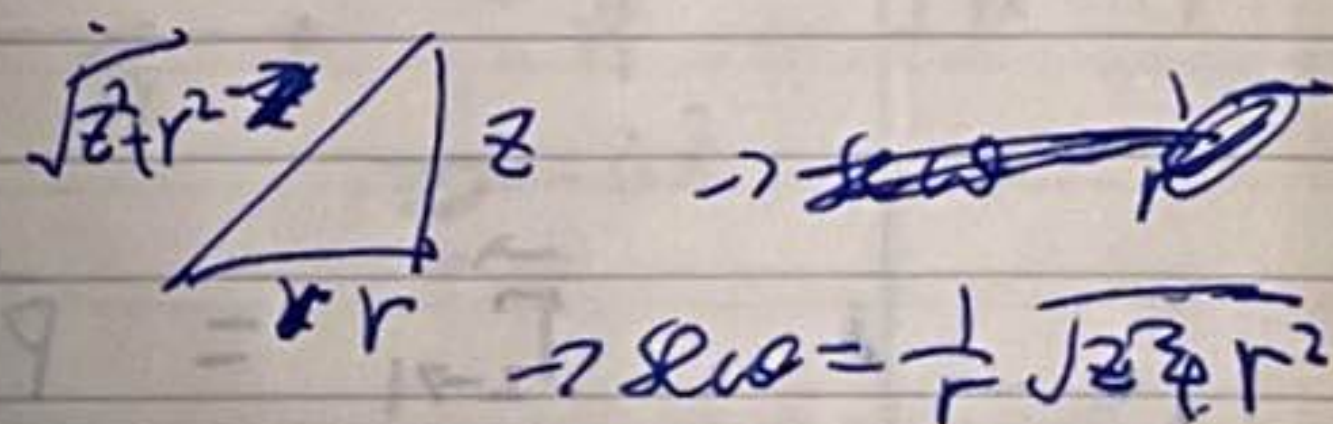 √z²+r²
z
r
→ secθ = 1/r √z²+r²